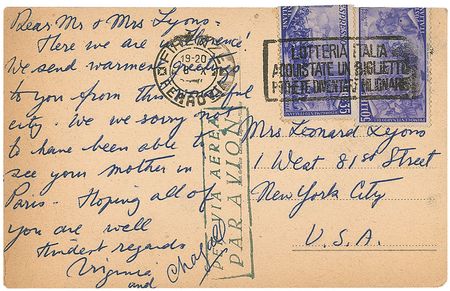 Dear Mr & Mrs Lyons -
Here we are in Florence!
We send warmest greetings
to you from this divine
city. We we sorry not
to have been able to
see your mother in
Paris. Hoping all of
you are well
Kindest regards
Virginia
and Chagall
FIRENZE
19-20
FERROVIA
LOTTERIA ITALIA
ACQUISTATE UN BIGLIETTO
POTRETE DIVENTARE MILIONARI
PER VIA AEREA
PAR AVION
Mrs. Leonard Lyons
1 West 81st Street
New York City
U.S.A.